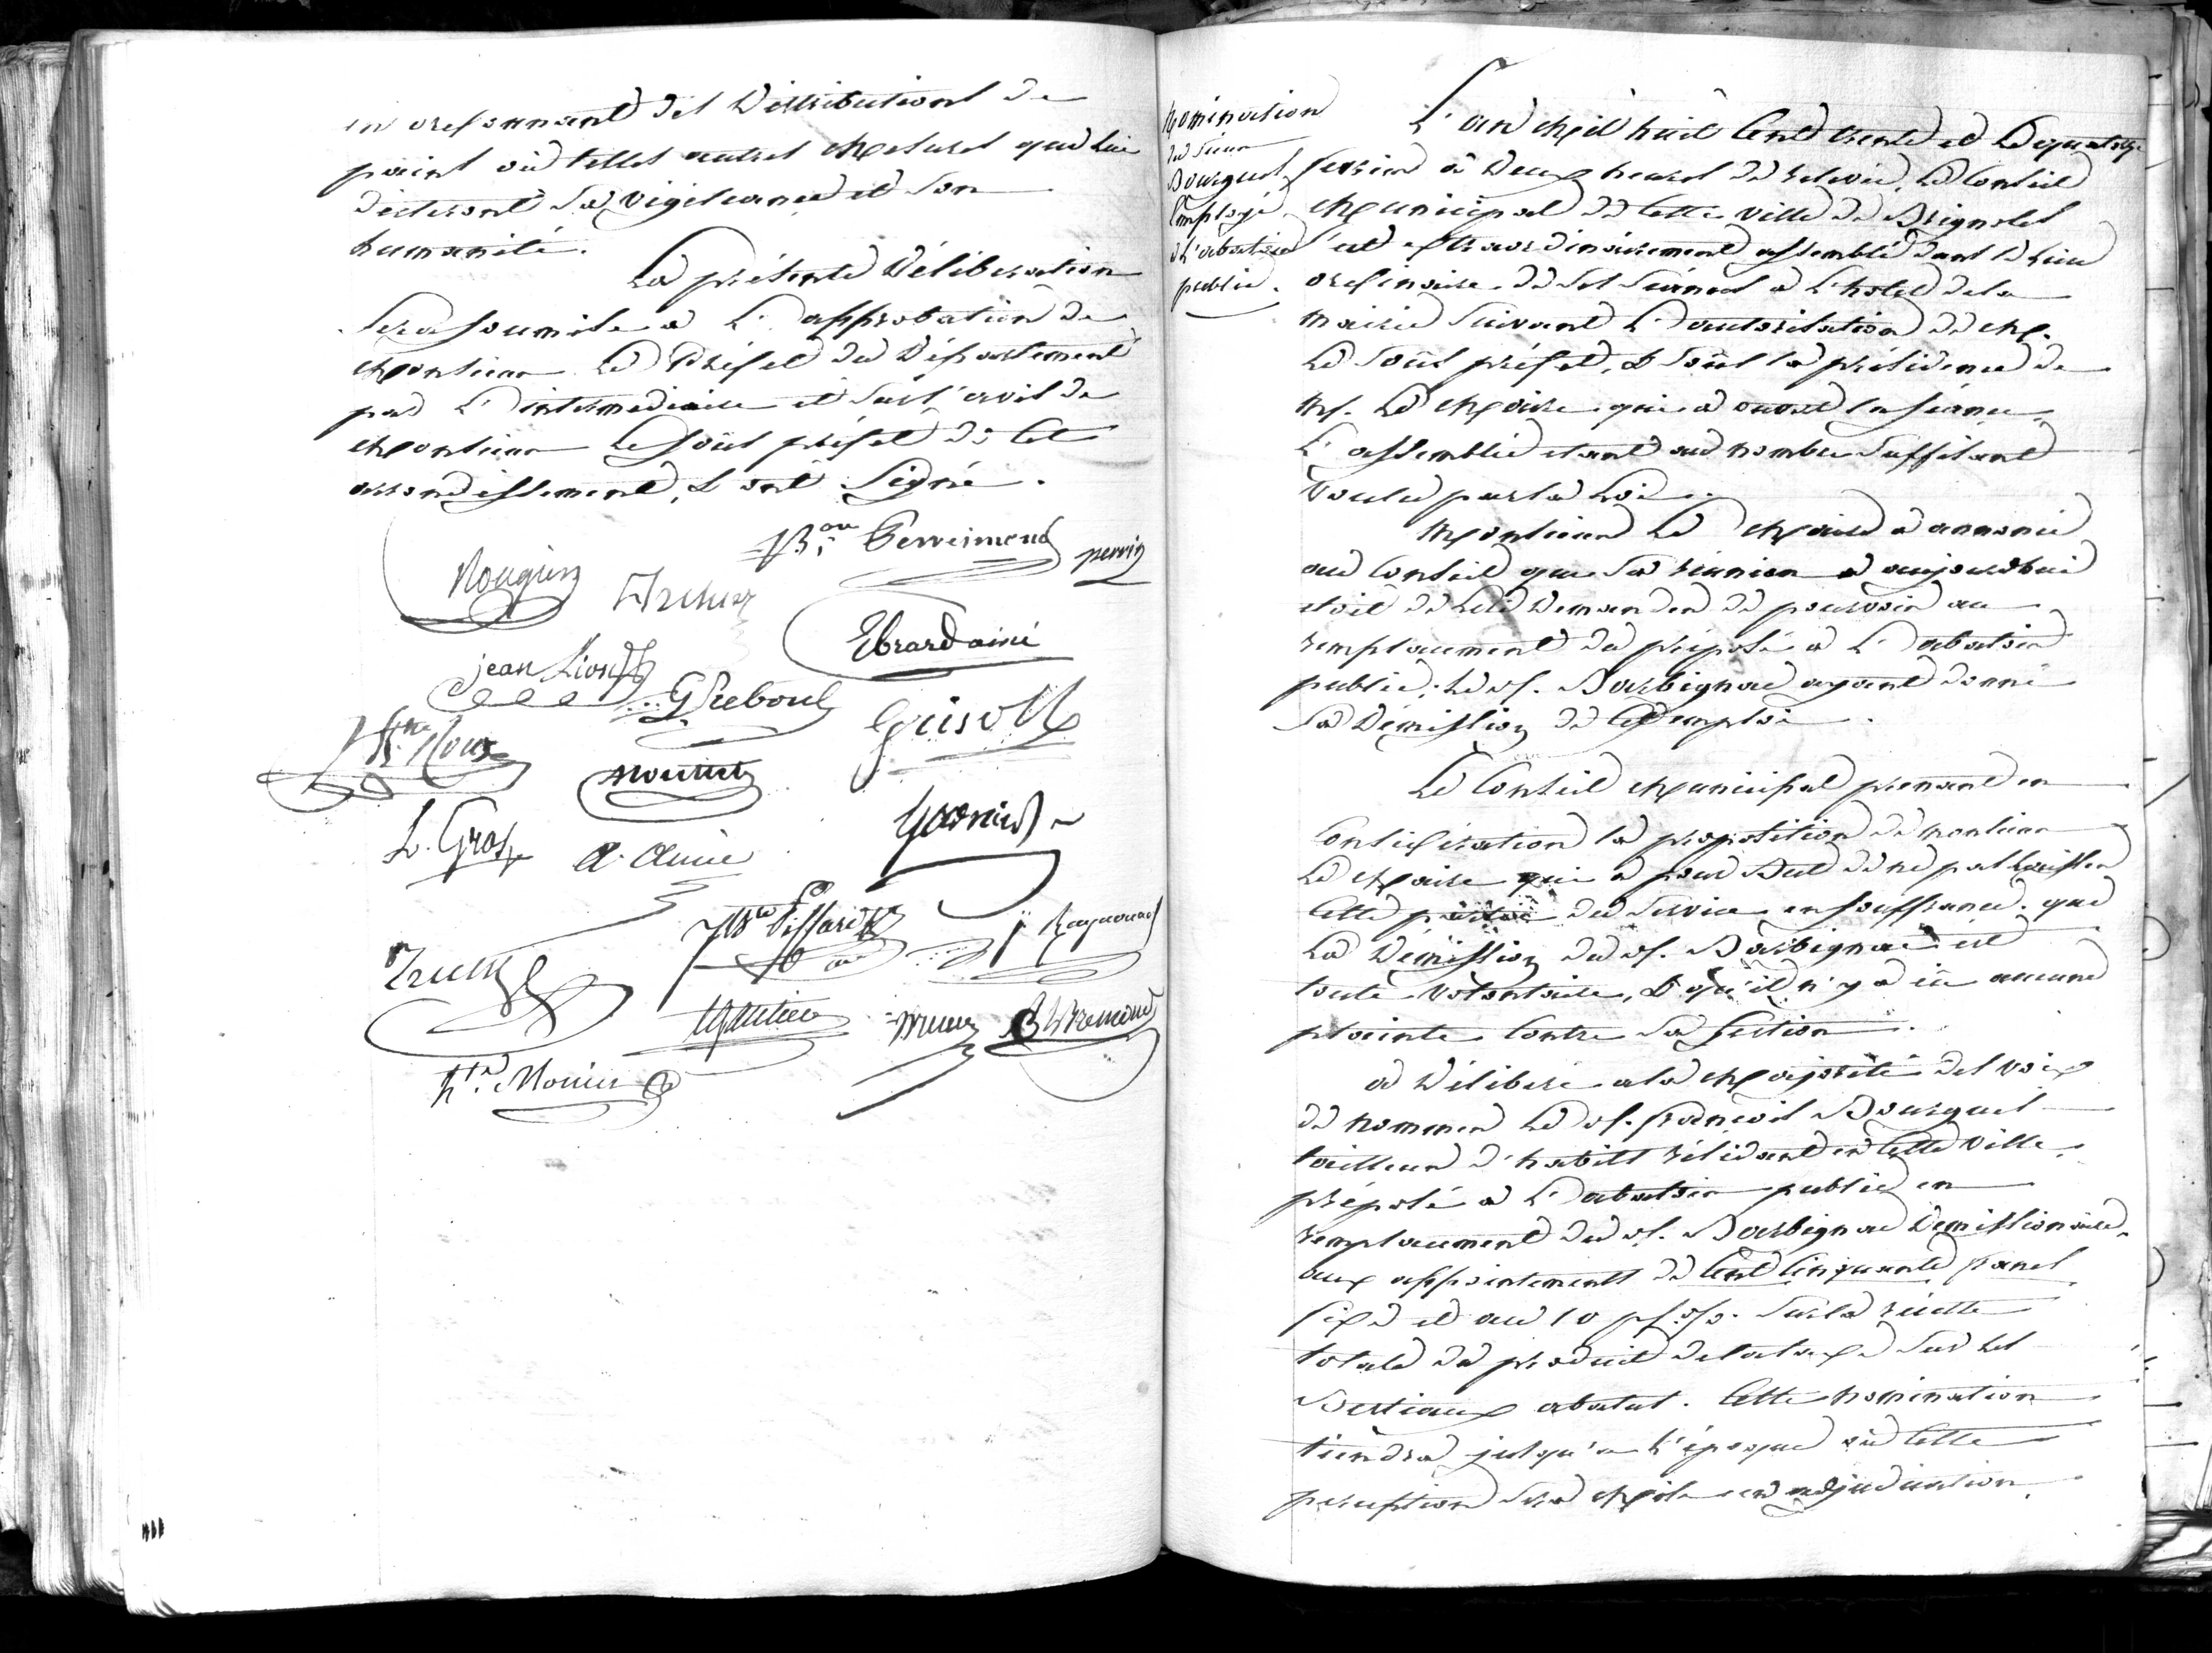 en ordonnant des Distributions de
pain où telles autres Mesures que lui
dicteront sa vigilance et son
humanité.
La présente Délibération
sera soumise a L'approbation de
Monsieur Le Préfet du Département
par L'intermediaire et sur l'avis de
Monsieur Le sous préfet de cet
arrondissement, & ont signé.
Bon Perreimond
perrin
Nouguier
jean Lion
Ebrard ainé
G Reboul
Grisolle
hte Roux
Moutet
L. Gros
Garnier
Raynouard
Gautier
Brun
Bremond
hte. Monier
Nomination
du sieur
Bourguet
Employé
à L'abattoir
public.
L'an Mil huit Cent trente et Le quatorze
fevrier à Deux heures de relevée, Le Conseil
Municipal de Cette ville de Brignoles
s'est extraordinairement assemblé dans le lieu
ordinaire de ses séances à L'hotel de la
mairie suivant L'autorisation de M.
Le sous préfet, & sous la présidence de
M. Le Maire qui a ouvert la séance,
L'assemblée étant au nombre suffisant
voulu par la Loi.
Monsieur Le Maire a annoncé
au Conseil que sa réunion d'aujourdhui
etoit de lui Demander de pourvoir au
remplacement du préposé à L'abatoir
public, Le sr. Barbignac ayant donné
sa Démission de Cet emploi.
Le Conseil Municipal prenant en
Considération la proposition de monsieur
Le Maire qui a pour But de ne pas laisser
Cette partie du service en souffrance. que
La Démission du sr. Barbignac est
toute volontaire, & qu'il n'y a eu aucune
plainte Contre sa Gestion.
a Délibéré a la Majorité des voix
de nommer Le sr. françois Bourguet
tailleur d'habits résidant en Cette Ville,
préposé à L'abatoir public en
remplacement du sr. Barbignac Démissionaire,
aux appointements de Cent Cinquante francs
fixe et au 10 p. % sur la recette
totale du produit de la taxe sur les
Bestiaux abatus. Cette nomination
tiendra jusqu'a L'époque où Cette
perception sera Mise en adjudication.